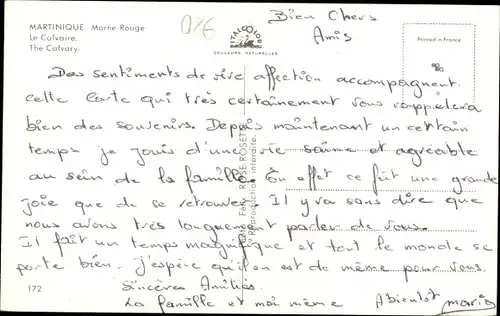 MARTINIQUE - Morne-Rouge
Le Calvaire.
The Calvary.
026
ITALCOLOR
COULEURS NATURELLES
Printed in France
Bien Chers
Amis
Des sentiments de vive affection accompagnent
cette Carte qui très certainement vous rappelera
bien des souvenirs. Depuis maintenant un certain
temps je jouis d'une vie saine et agréable
au sein de la famille. En effet ce fut une grande
joie que de se retrouver. Il y va sans dire que
nous avons très longuement parler de vous.
Il fait un temps magnifique et tout le monde se
porte bien. J'espère qu'il en est de même pour vous.
Sincères Amitiés.
La famille et moi même A bientôt Mario
172
Félix ROSE-ROSETTE
Reproduction interdite.